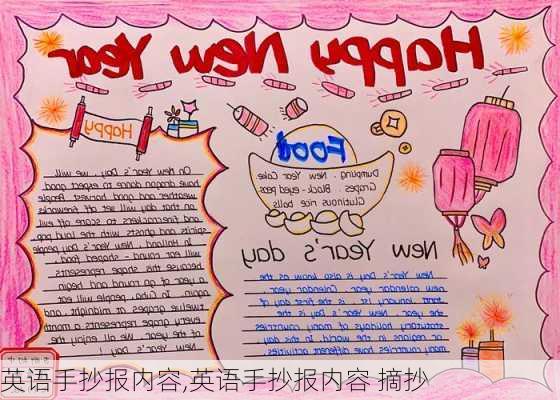 Happy New Year
Happy
On New Year's Day, we will
have dragon dare to expect good
weather and good harvest. People
on that day will set off fireworks
and firecrackers to scare off evil
spirits and ghosts with the loud pop
. In Holland, New Year's Day people
will eat round - shaped food,
because this shape represents
a year of go round and begin
again. In Cuba, people will eat
twelve grapes at midnight, and
every grape represents a month
of the year. We all enjoy the
Food
Dumpling . New Year Cake
Grapes . Black - eyed peas
Glutinous rice balls
New Year's day
New Year's Day is also known as the
new calendar year. Calendar
January 1st, is the first day of
year. New Year's Day is the
statutory holiday of many countries
in the world.
many countries have different activities.
英语手抄报内容,英语手抄报内容 摘抄